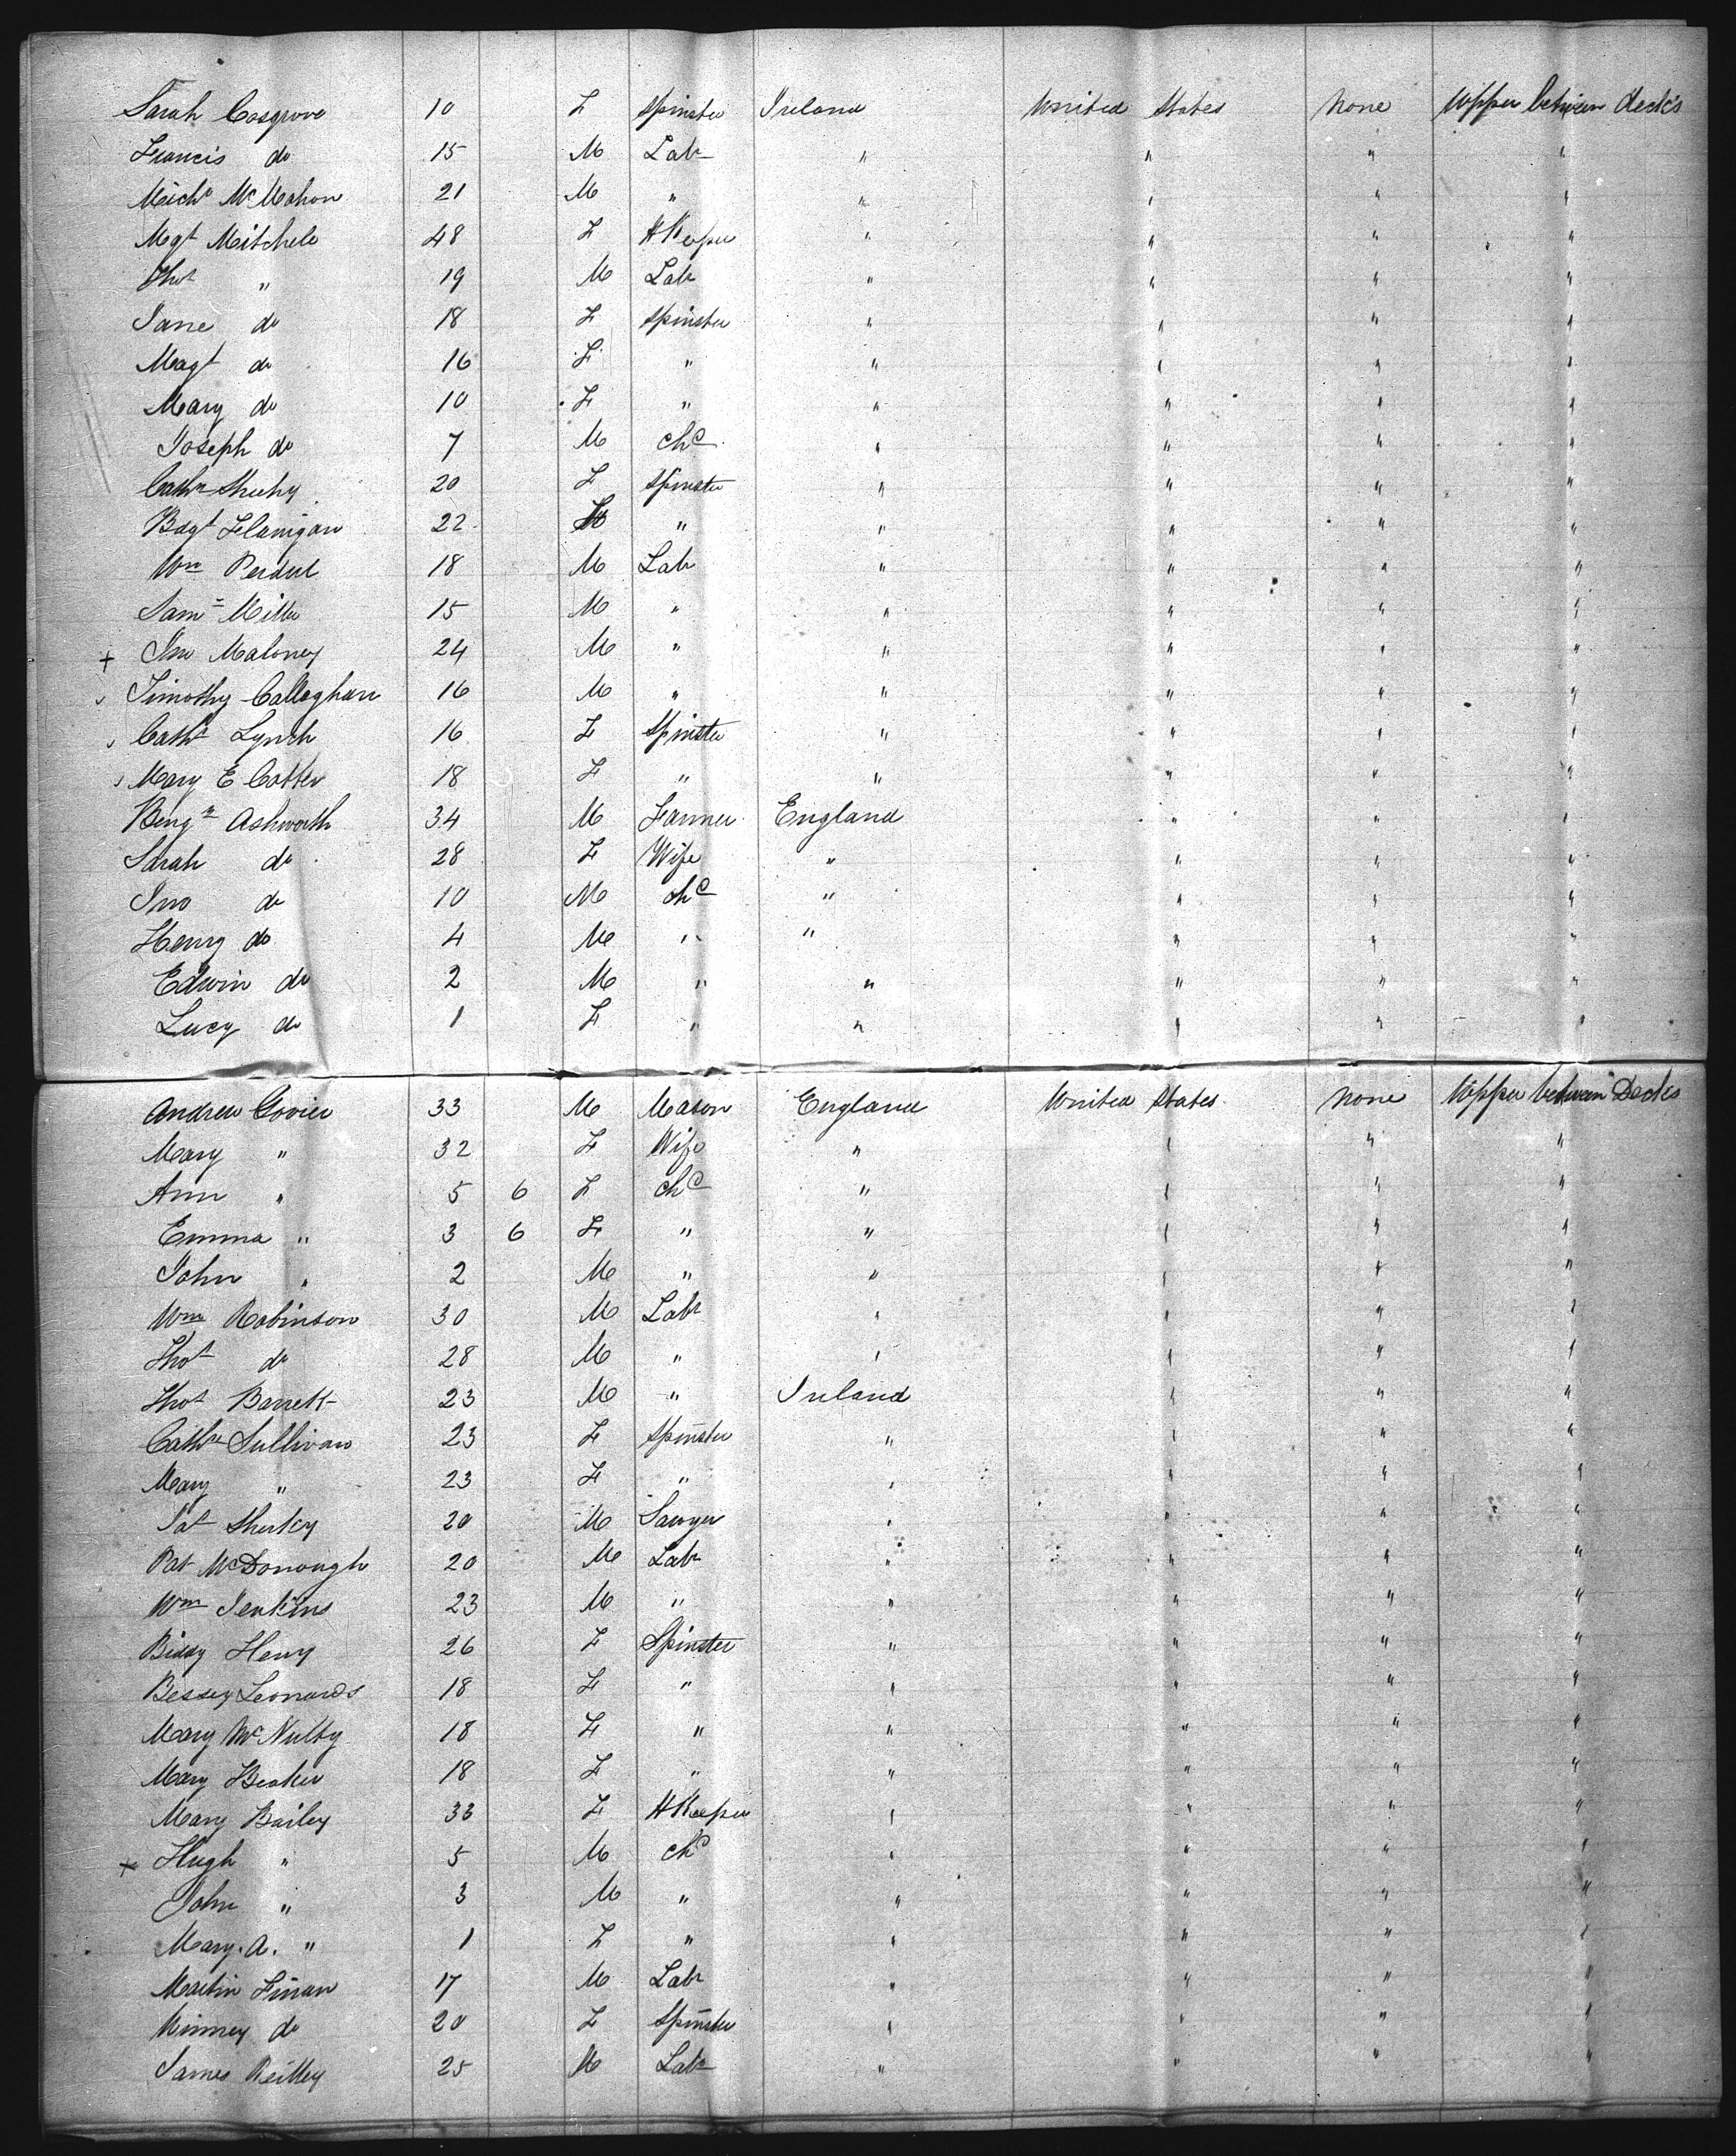 Sarah Cosgrove 10 F Spinster Ireland United States None Upper between decks
Francis do 15 M Lab " " " "
Mich McMahon 21 M " " " " "
Mgt Mitchele 48 F HKeeper " " " "
Thos " 19 M Labr " " " "
Jane do 18 F Spinster " " " "
Magt do 16 F " " " " "
Mary do 10 F " " " " "
Joseph do 7 M chd " " " "
Cathn Sheehy 20 F Spinster " " " "
Bdgt Flanigan 22 " " " " "
Wm Perdue 18 M Labr " " " "
Saml Mille 15 M " " " " "
+ Jno Maloney 24 M " " " " "
Timothy Callaghan 16 M " " " " "
Cath Lynch 16 F Spinster " " " "
Mary E Cotter 18 F " " " " "
Benjn Ashworth 34 M Farmer England " " "
Sarah do 28 F Wife " " " "
Jno do 10 M chd " " " "
Henry do 4 M " " " " "
Edwin do 2 M " " " " "
Lucy do 1 F " " " " "
Andrew Govier 33 M Mason England United States None Upper between Decks
Mary " 32 F Wife " " " "
Ann " 5 6 F chd " " " "
Emma " 3 6 F " " " " "
John " 2 M " " " " "
Wm Robinson 30 M Labr " " " "
Thos do 28 M " " " " "
Thos Barrett 23 M " Ireland " " "
Cathn Sullivan 23 F Spinster " " " "
Mary " 23 F " " " " "
Pat 20 M Sawyer " " " "
Pat McDonough 20 M Labr " " " "
Wm Jenkins 23 M " " " " "
Biddy Henry 26 F Spinster " " " "
Bessey Leonards 18 F " " " " "
Mary McNulty 18 F " " " " "
Mary 18 F " " " " "
Mary Bailey 33 F HKeeper " " " "
+ Hugh " 5 M chd " " " "
John " 3 M " " " " "
Mary.A. " 1 F " " " " "
Martin Finan 17 M Labr " " " "
Winney do 20 F Spinster " " " "
James Reilley 25 M Labr " " " "